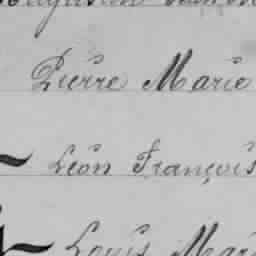 Pierre Marie
Léon François
Louis Mari